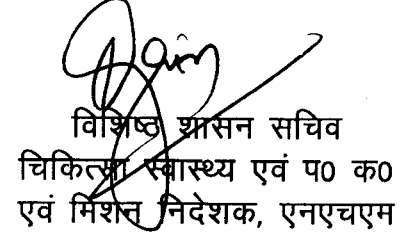 विशिष्ठ शासन सचिव
चिकित्सा स्वास्थ्य एवं प0 क0
एवं मिशन निदेशक, एनएचएम